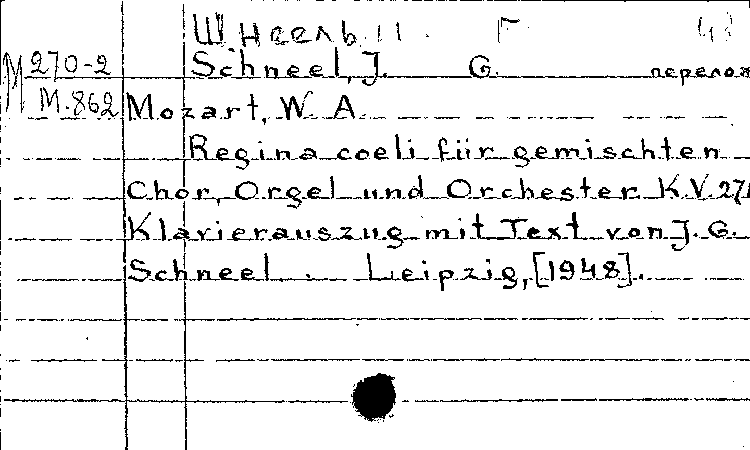 Шнеель, И. Г.
M 270-2 Schneel, J. G. перелож
M.862 Mozart, W. A.
Regina coeli für gemischten
Chor, Orgel und Orchester K.V.27
Klavierauszug mit Text von J. G.
Schneel. Leipzig, [1948].